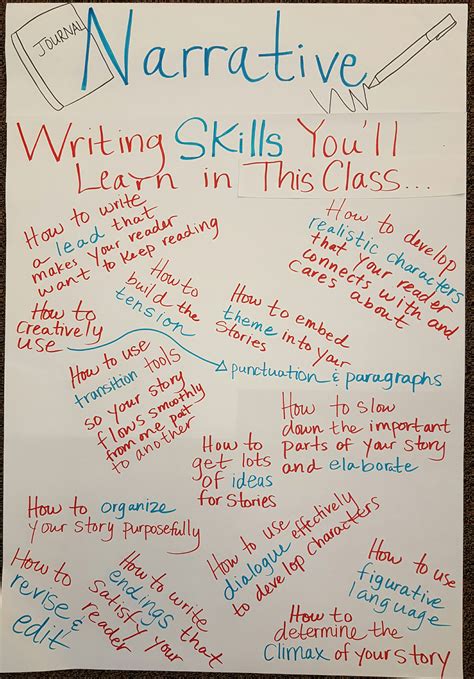 JOURNAL
Narrative
Writing Skills You'll
Learn in This Class...
How to write
a lead that
makes your reader
want to keep reading
How to develop
realistic characters
that your reader
connects with and
cares about
How to
build the
tension
How to
creatively
use
punctuation & paragraphs
How to embed
theme into your
Stories
How to use
transition tools
so your story
flows smoothly
from one part
to another
How to slow
down the important
parts of your story
and elaborate
How to
get lots
of ideas
for Stories
How to organize
your story purposefully
How to use
dialogue effectively
to develop characters
How to use
figurative
language
How to write
endings that
satisfy your
reader
How to
revise &
edit
How to
determine the
Climax of your story